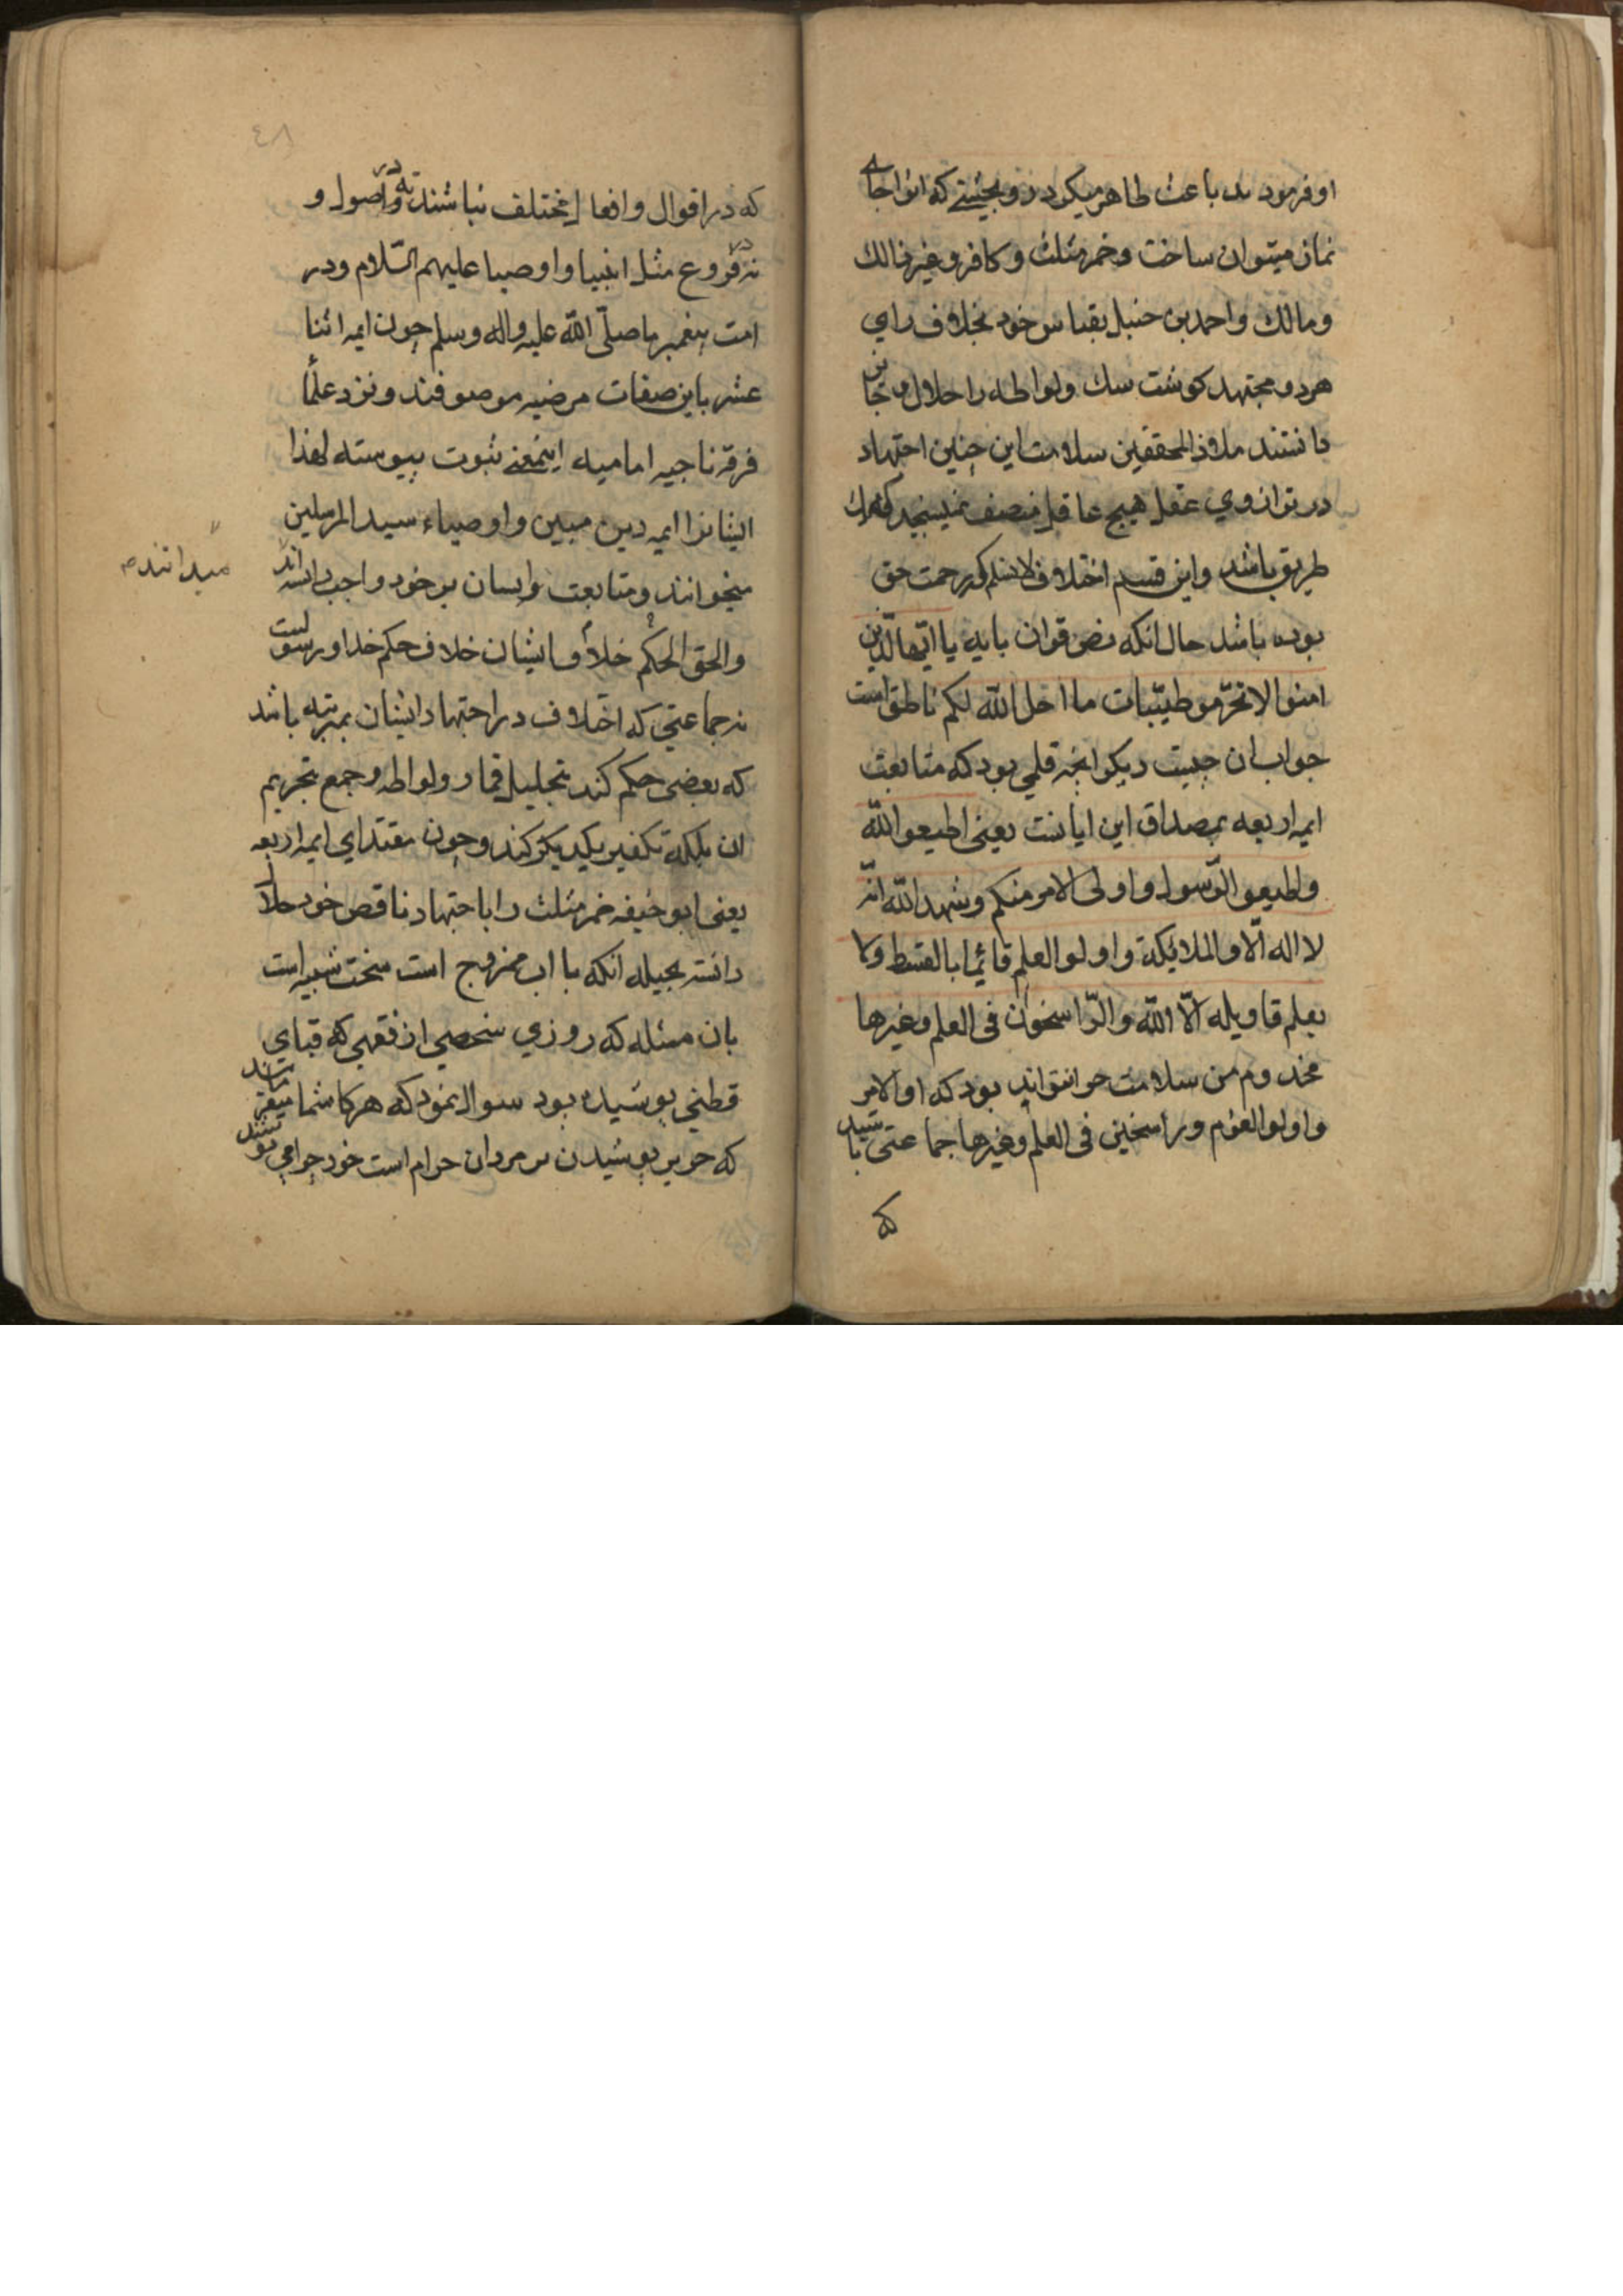 او فرمودند باعث طاهر میکردد و بحیثیتی که انرا جای
نماز میتوان ساخت و خمر مثلث و کافر و غیر ذالک
و مالک و احمد بن حنبل بقیاس خود بخلاف رای
هر دو مجتهد کوشت سک و لواطه را حلال و جایز
دانستند ملاذ المحققین سلامت این چنین اجتهاد
در ترازوی عقل هیچ عاقل منصف نمیسنجد که
طریق باشد و این قسم اختلاف لا نسلم که رحمت حق
بوده باشد حال انکه نص قران بایه یا ایها الذین
امنوا لا تحرمو طیبات ما احل الله لکم ناطق است
جواب ان چیست دیکر انچه قلمی بود که متابعت
ایمه اربعه بمصداق این ایاتست یعنی اطیعو الله
و اطیعو الرسول و اولی الامر منکم و شهد الله انه
لا اله الا و الملائیکة و اولو العلم قائما بالقسط و ما
یعلم تاویله الا الله و الراسخون فی العلم و غیرها
مخدوم من سلامت خواهد بود که او الامر
و اولو العلم و راسخین فی العلم و غیرها جماعتی باشید
که
٤٨
که در اقوال و افعال مختلف نباشند نه در اصول و
نه در فروع مثل انبیا و اوصیا علیهم السلام و در
امت پیغمبر ما صلی الله علیه و اله و سلم چون ایمه اثنا
عشر باین صفات مرضیه موصوفند و نزد علما
فرقه ناجیه امامیه اینمعنی ثبوت پیوسته لهذا
ایشانرا ایمه دین مبین و اوصیاء سید المرسلین
میدانند
میخوانند و متابعت ایشان بر خود واجب دانسته اند
والحق الحکم خلاف ایشان خلاف حکم خدا و رسولست
نه جماعتی که اختلاف در اجتهاد ایشان بمرتبه باشد
که بعضی حکم کند بتحلیل قمار و لواطه و جمع بتحریم
ان بلکه تکفیر یکدیکر کنند و چون مقتدای ایمه اربعه
یعنی ابو حنیفه خمر مثلث را باجتهاد ناقص خود حلال
دانسته بحیله انکه با اب ممزوج است سخت شبیه است
بان مسئله که روزی شخصی از فقهی که قبای
قطنی پوشیده بود سوال نمود که هرکا شما میفرمایند
که حریر پوشیدن بر مردان حرام است خود چرا می پوشند